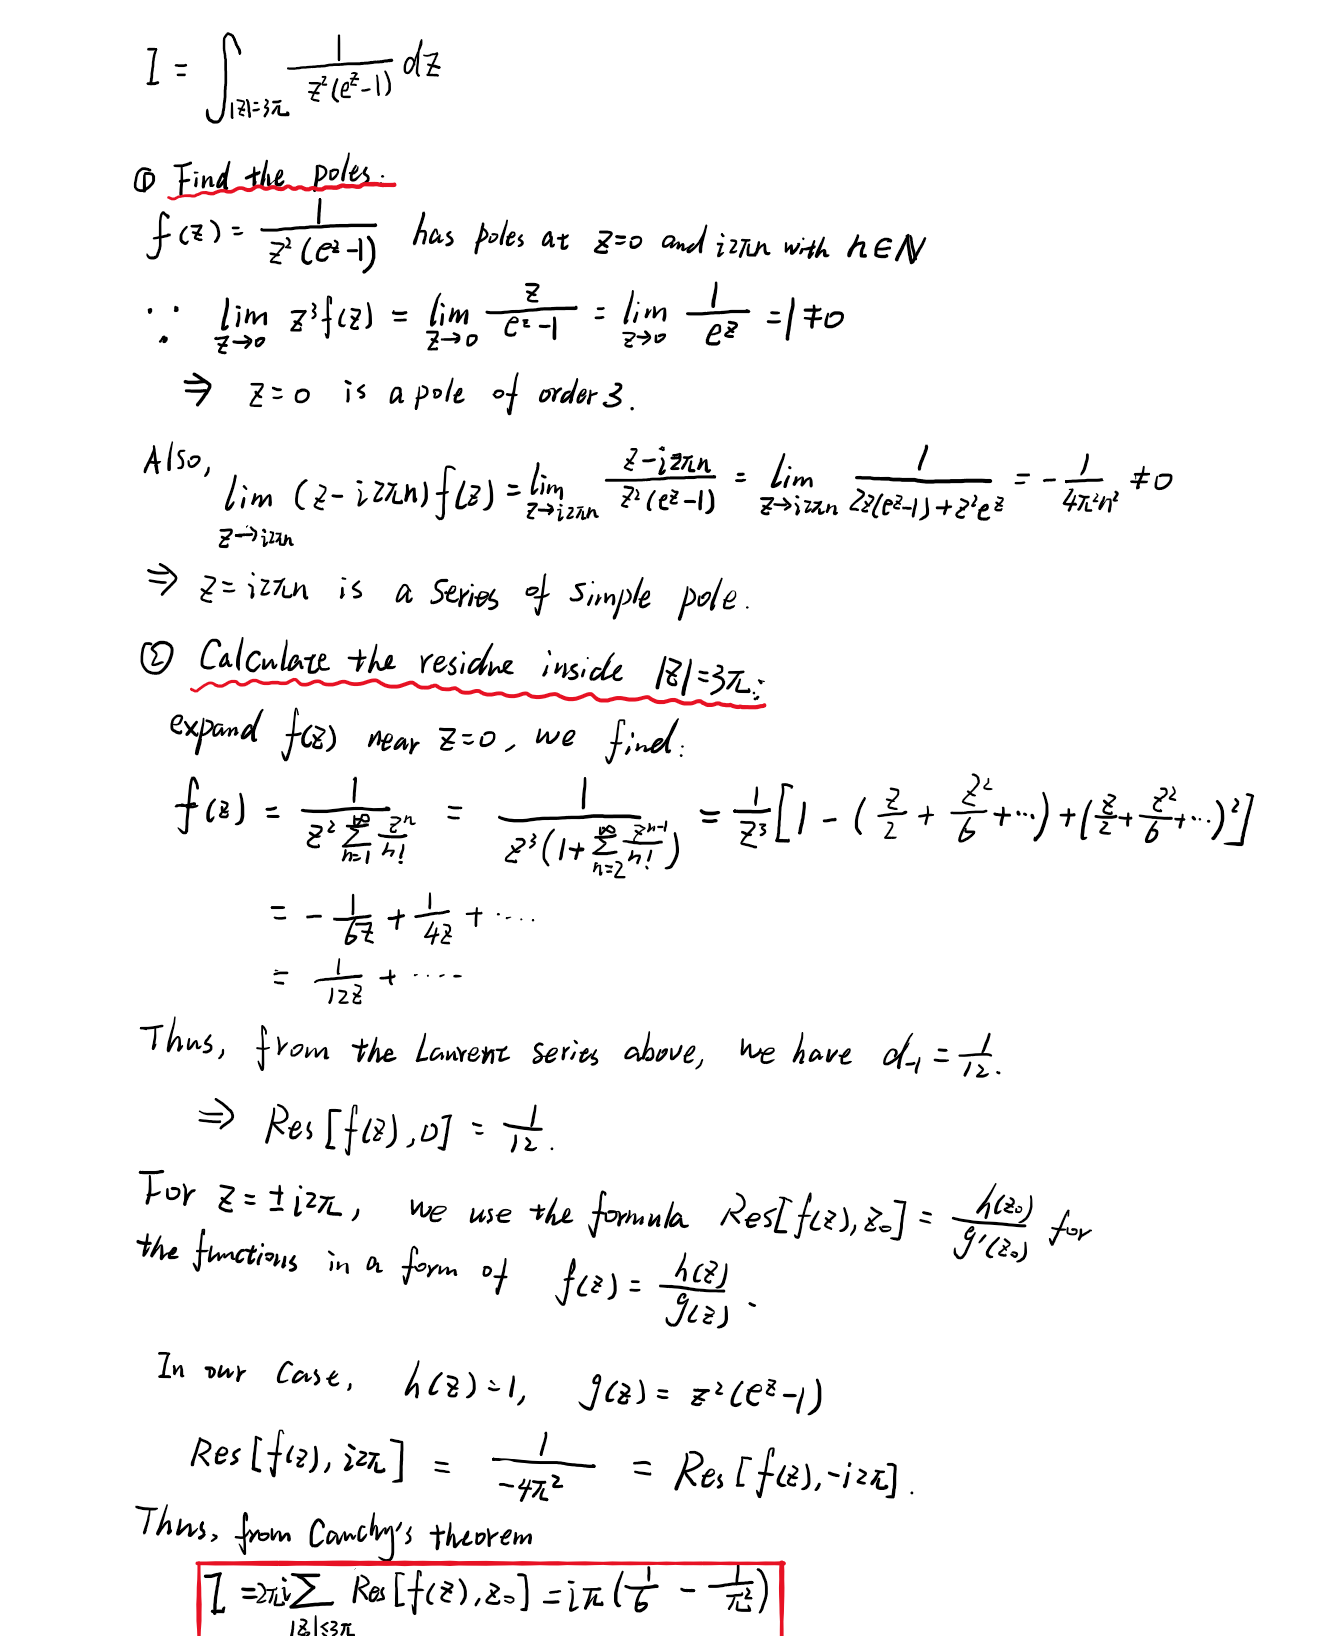 I = ∫_{|z|=3π} 1/(z²(e^z-1)) dz
① Find the poles.
f(z) = 1/(z²(e^z-1)) has poles at z=0 and i2πn with n∈ℕ
∵ lim_{z→0} z³f(z) = lim_{z→0} z/(e^z-1) = lim_{z→0} 1/e^z = 1 ≠ 0
⇒ z=0 is a pole of order 3.
Also, lim_{z→i2πn} (z-i2πn)f(z) = lim_{z→i2πn} (z-i2πn)/(z²(e^z-1)) = lim_{z→i2πn} 1/(2z(e^z-1)+z²e^z) = -1/(4π²n²) ≠ 0
⇒ z=i2πn is a series of simple pole.
② Calculate the residue inside |z|=3π:
expand f(z) near z=0, we find:
f(z) = 1/(z² Σ_{n=1}^{∞} z^n/n!) = 1/(z³(1+Σ_{n=2}^{∞} z^{n-1}/n!)) = 1/z³ [1 - (z/2 + z²/6 + ...) + (z/2 + z²/6 + ...)²]
= -1/(6z) + 1/(4z) + ....
= 1/(12z) + ....
Thus, from the Laurent series above, we have d_{-1} = 1/12.
⇒ Res[f(z),0] = 1/12.
For z=±i2π, we use the formula Res[f(z),z₀] = h(z₀)/g'(z₀) for
the functions in a form of f(z) = h(z)/g(z).
In our case, h(z)=1, g(z)=z²(e^z-1)
Res[f(z),i2π] = 1/(-4π²) = Res[f(z),-i2π].
Thus, from Cauchy's theorem
I = 2πi Σ_{|z₀|≤3π} Res[f(z),z₀] = iπ(1/6 - 1/π²)